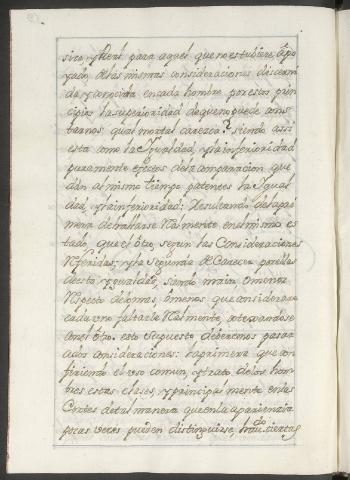 sivo, y Real para aquel que no estubiere apo
yado de las mismas consideraciones discerni
da, y conocida en cada hombre por estos prin
cipios la superioridad de que no puede
trarnos qual mortal carezca? siendo assi
esta como la Igualdad, y la inferioridad
puramente efectos de la comparacion que
dân al mismo tiempo patentes la Igual
dad, y la inferioridad: Resultando de la pri
mera de hallarse Râl merito en el mismo es
tado que el ôtro, segun las Consideraciones
Referidas; y la segunda de Carecer por ellas
de esta Ygualdad, siendo maior, ô menor
Respecto de lo mas, ô menos que considerare
cada uno faltarle Realmente, cotexandose
con el ôtro: esto supuesto deberemos pasar
a dos consideraciones: la primera que con
firiendo el uso comun, y trato de los hom
bres estas clases, y principalmente en las
Cortes de tal manera que en la apariencia
pocas veces pueden distinguirse, ciertas